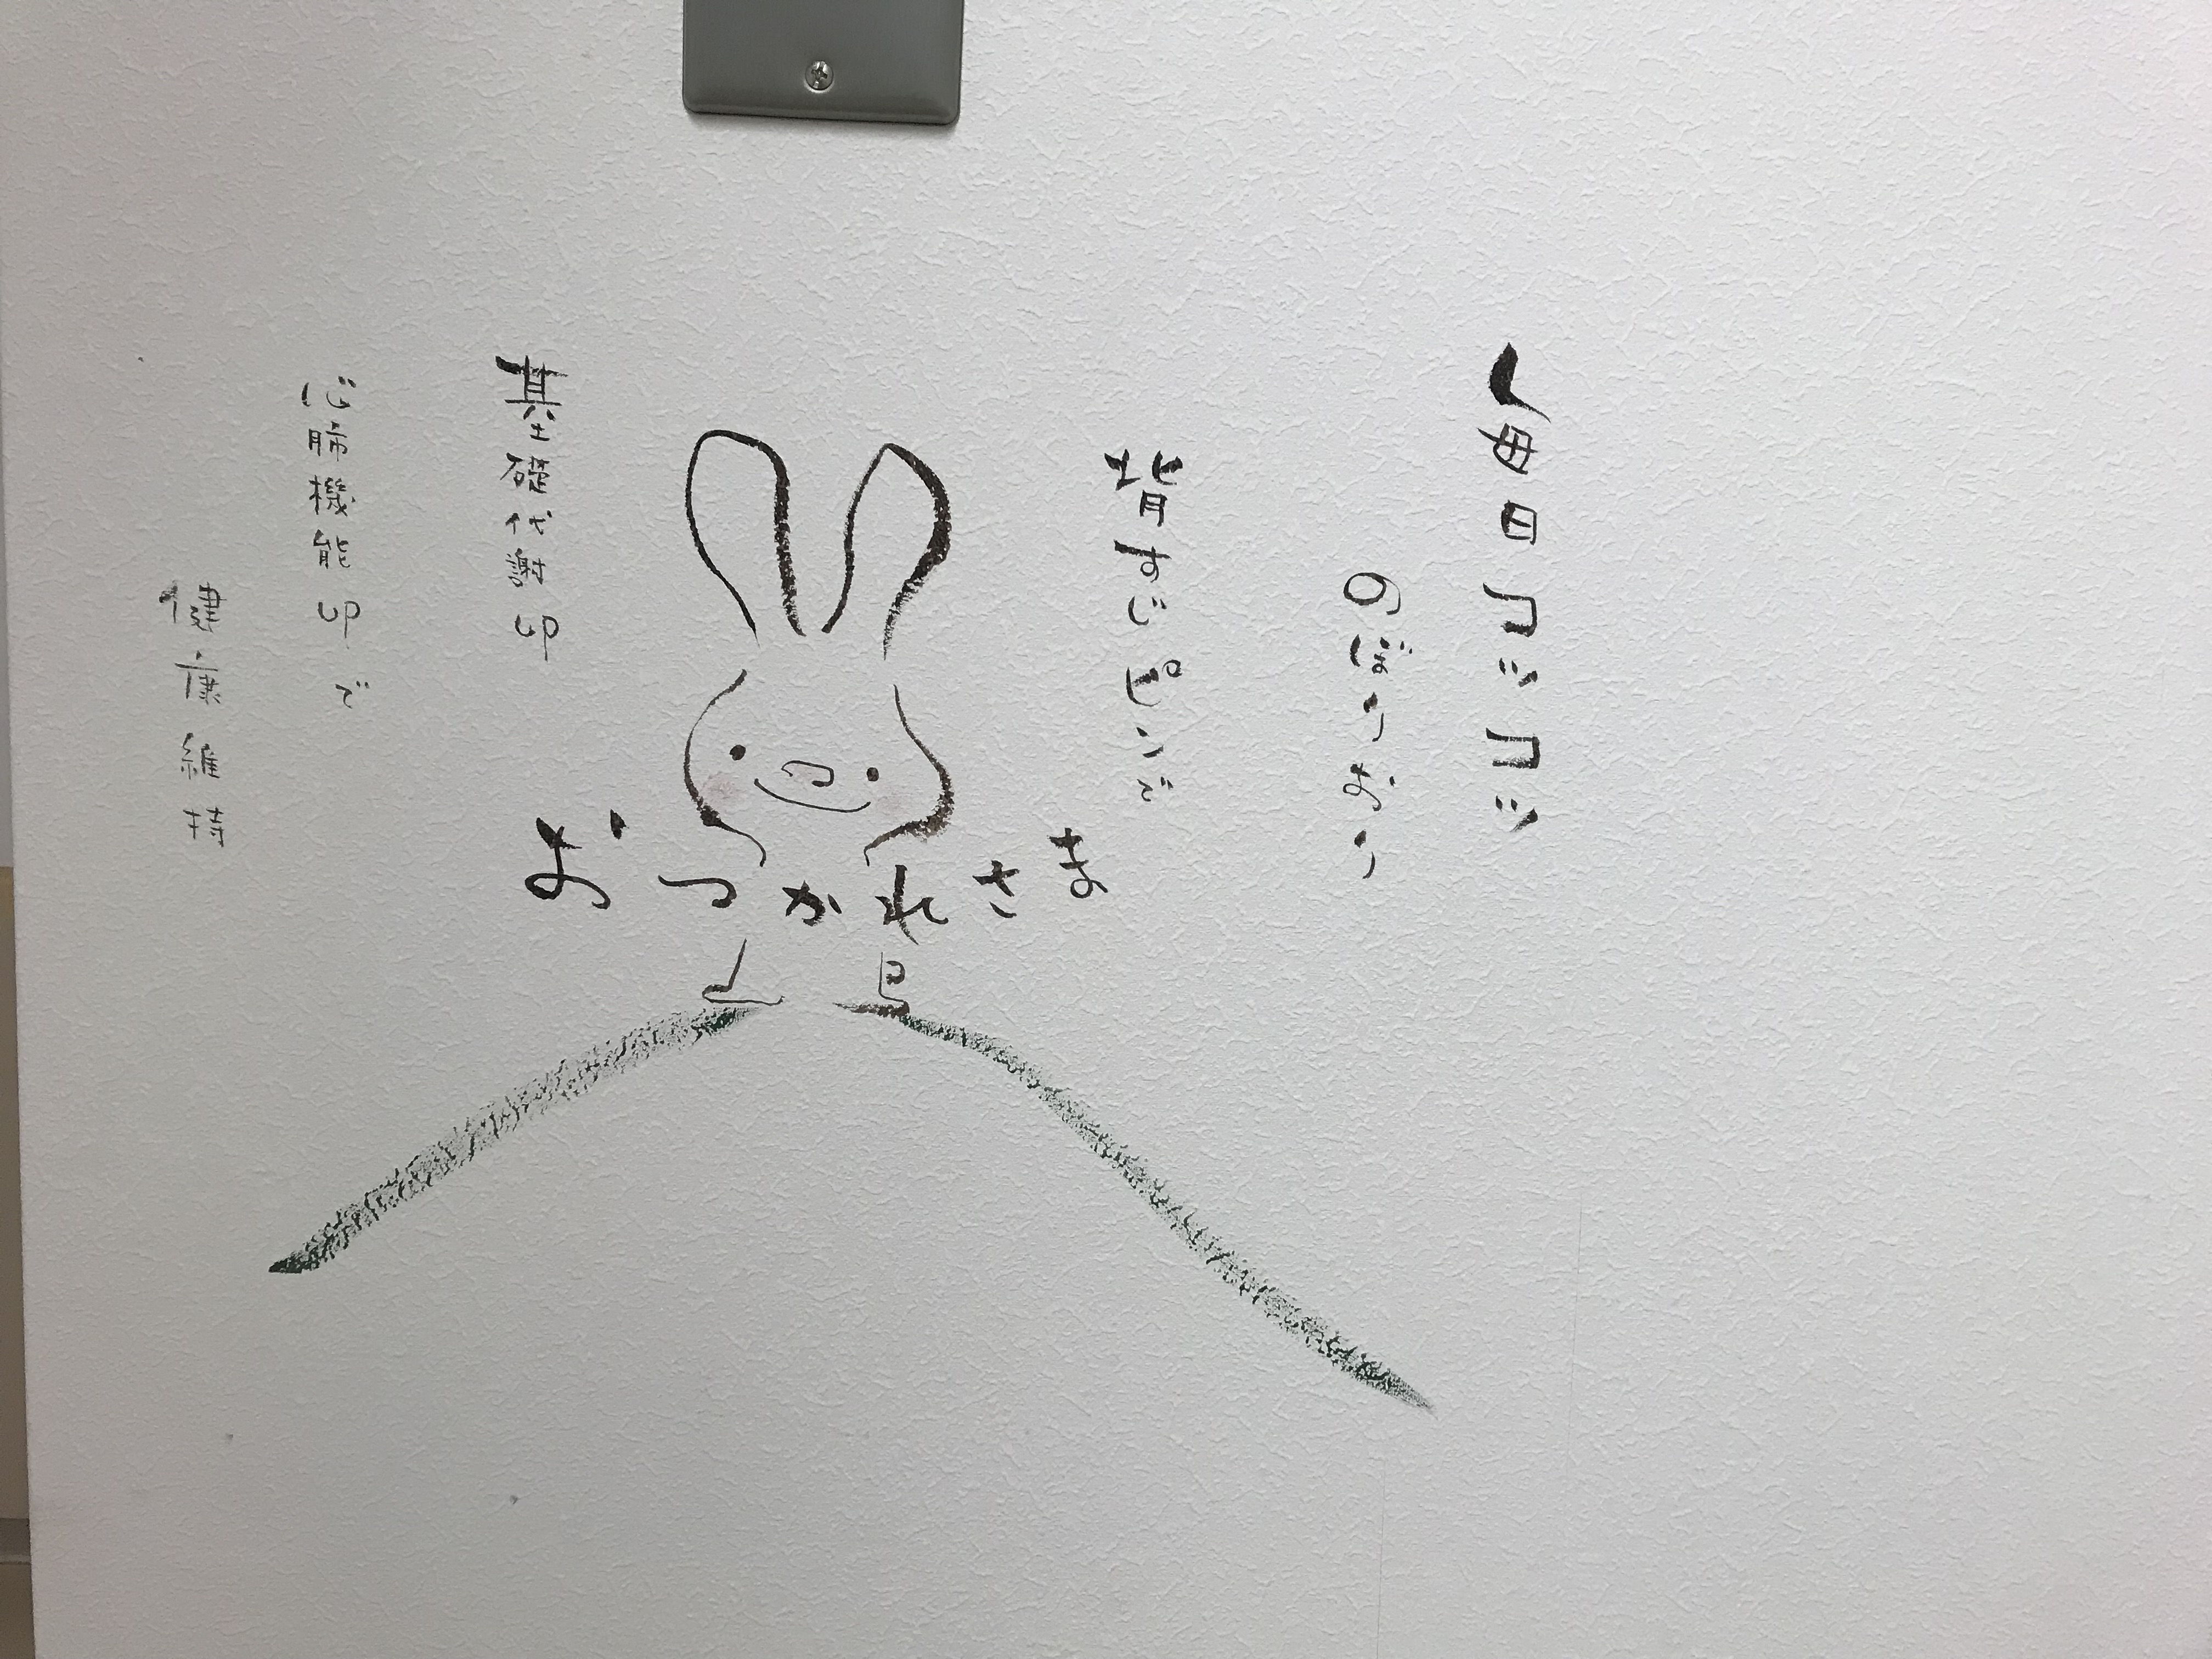 毎日コツコツ
のぼりおり
背すじピンで
おつかれさま
基礎代謝UP
心肺機能UPで
健康維持